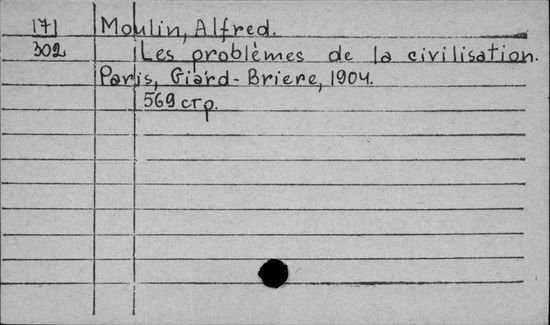 171 Moulin, Alfred.
302 Les problèmes de la civilisation.
Paris, Giard-Briere, 1904.
569 стр.